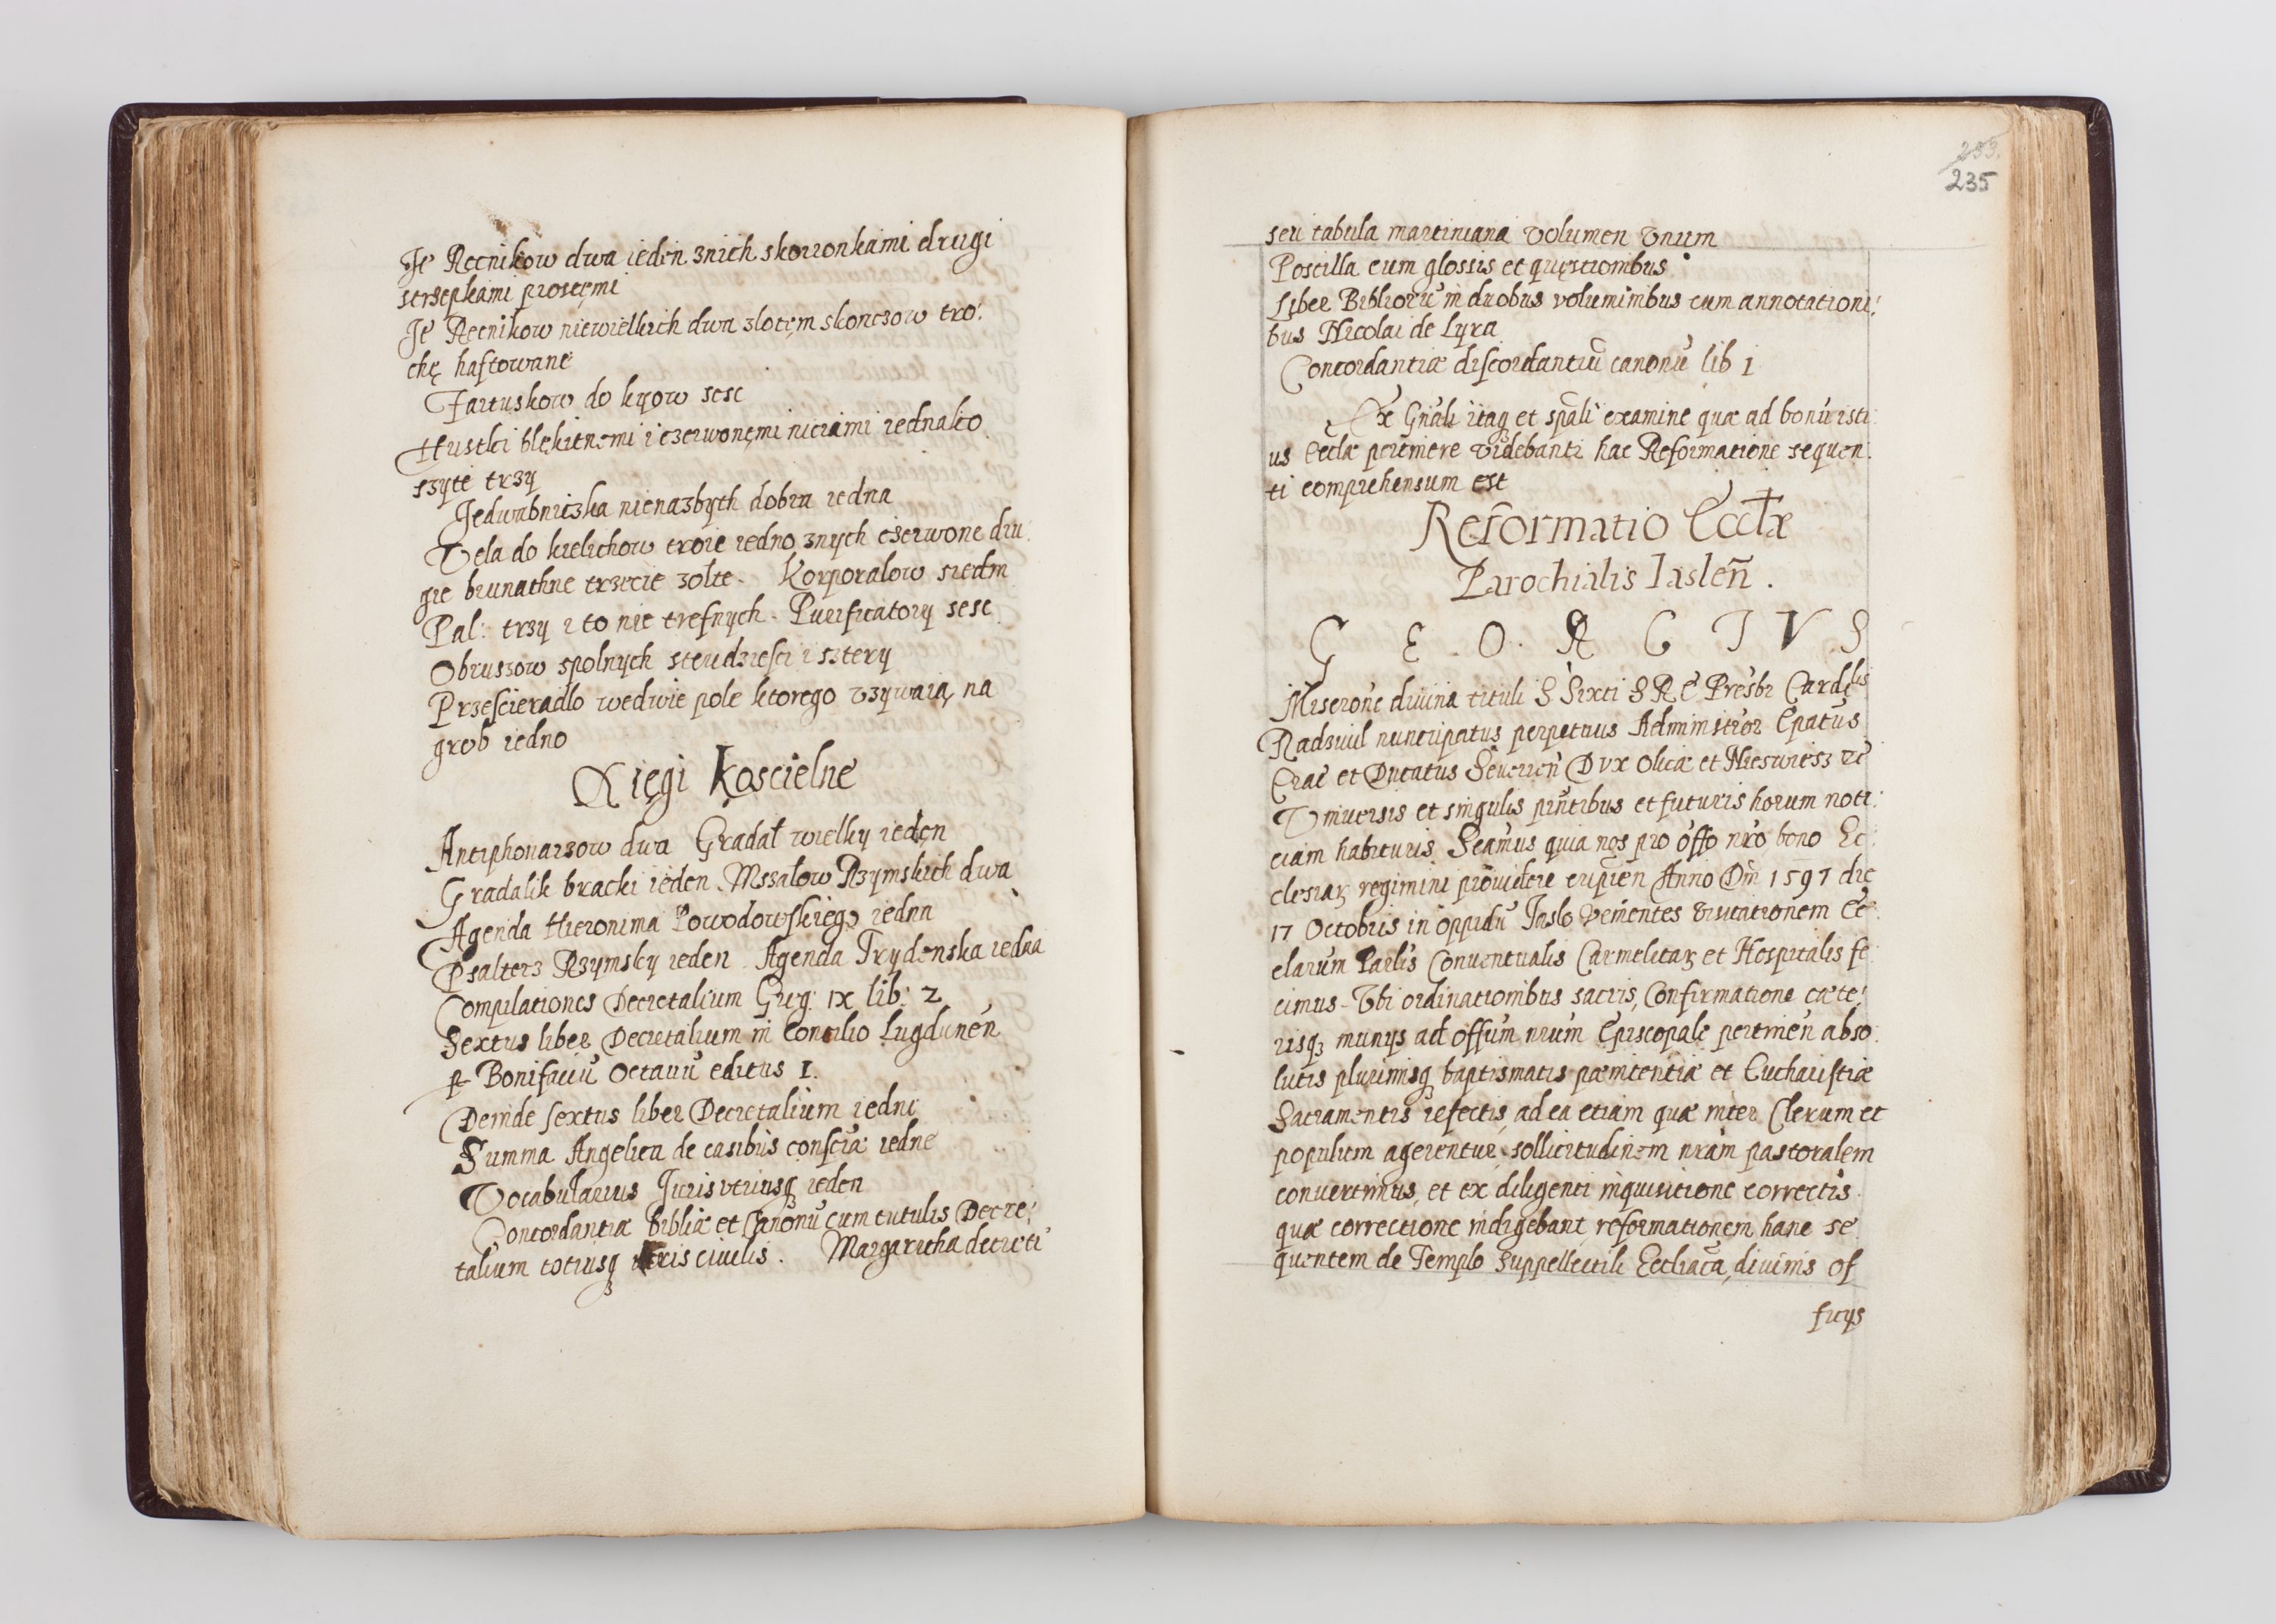 Je Recnikow dwa ieden znich skoronkami drugi
strzepkami prostęmi
Je Recnikow niewielkich dwa zlotęm skonczow tro:
chę haftowane
Fartuskow do krzow sesc
Hustki blękitnemi i czerwonęmi niciami iednako
szyte trzy
Jedwabniczka nienazbyth dobra iedna
Vela do kielichow troie iedno znych czerwone dru:
gie brunathne trzecie zolte. Korporalow siedm
Pal: trzy i to nie trefnych. Purificatorzy sesc
Obruszow spolnych sterdziesci i sztery
Przescieradlo wedwie pole ktorego vzywaią na
grob iedno
Xięgi Koscielne
Antiphonarzow dwa Gradał wielky iedęn
Gradalik bracki ieden. Mszalow Rzymskich dwa
Agenda Hieronima Powodowskiego iedna
Psalterz Rzymsky ieden. Agenda Trydenska iedna
Compilationes Decretalium Greg: IX lib: 2
Sextus liber Decretalium in Concilio Lugdunen̄
p Bonifaciū Octauū editus 1.
Deinde sextus liber Decretalium iedne
Summa Angelica de casibus conscia: iedne
Vocabularius Juris vtriusq ieden
Concordantiæ bibliæ et Canonū cum tutulis Decre:
talium totiusq iuris ciuilis. Margaritha decreti
233.
235
seu tabula martiniana volumen vnum
Postilla cum glossis et quęstionibus
Liber Bibliorū in duobus voluminibus cum annotationi:
bus Nicolai de Lyra
Concordantiæ discordantiū canonū lib 1
Ex Gnāli itaq et spāli examine quæ ad bonū isti:
us Ecclæ pertinere videbantr hac Reformatione sequen:
ti comprehensum est
Reformatio Ecclæ
Parochialis Iaslen̄.
GEORGIVS
Miserōne diuina tituli S Sixti S R E Presbr Cardlis
Radziuil nuncupatus perpetuus Administror Epatus
Crac et Ducatus Seuerien̄ Dvx Olicæ et Nieswiesz etc
Vniuersis et singulis pn̄tibus et futuris horum noti:
ciam habituris. Sciamus quia nos pro offo nr̄o bono Ec:
clesiaȝ regimini prouidere cupien̄ Anno Dn̄i 1597 die
17 Octobris in oppidū Jaslo Venientes visitationem Ec:
clarum Parlis Conuentualis Carmelitaȝ et Hospitalis fe:
cimus. Vbi ordinationibus sacris, Confirmatione cæte:
risqȝ munijs ad offum nr̄um Episcopale pertinen̄ abso:
lutis plurimisq baptismatis pænitentiæ et Eucharistiæ
Sacramentis refectis, ad ea etiam quæ inter Clerum et
populum agerentur, sollicitudinem nr̄am pastoralem
conuertimus, et ex diligenti inquisitione correctis
quæ correctione indigebant reformationem hanc se
quentem de Templo Suppellectili Eccliāca, diuinis of
ficijs